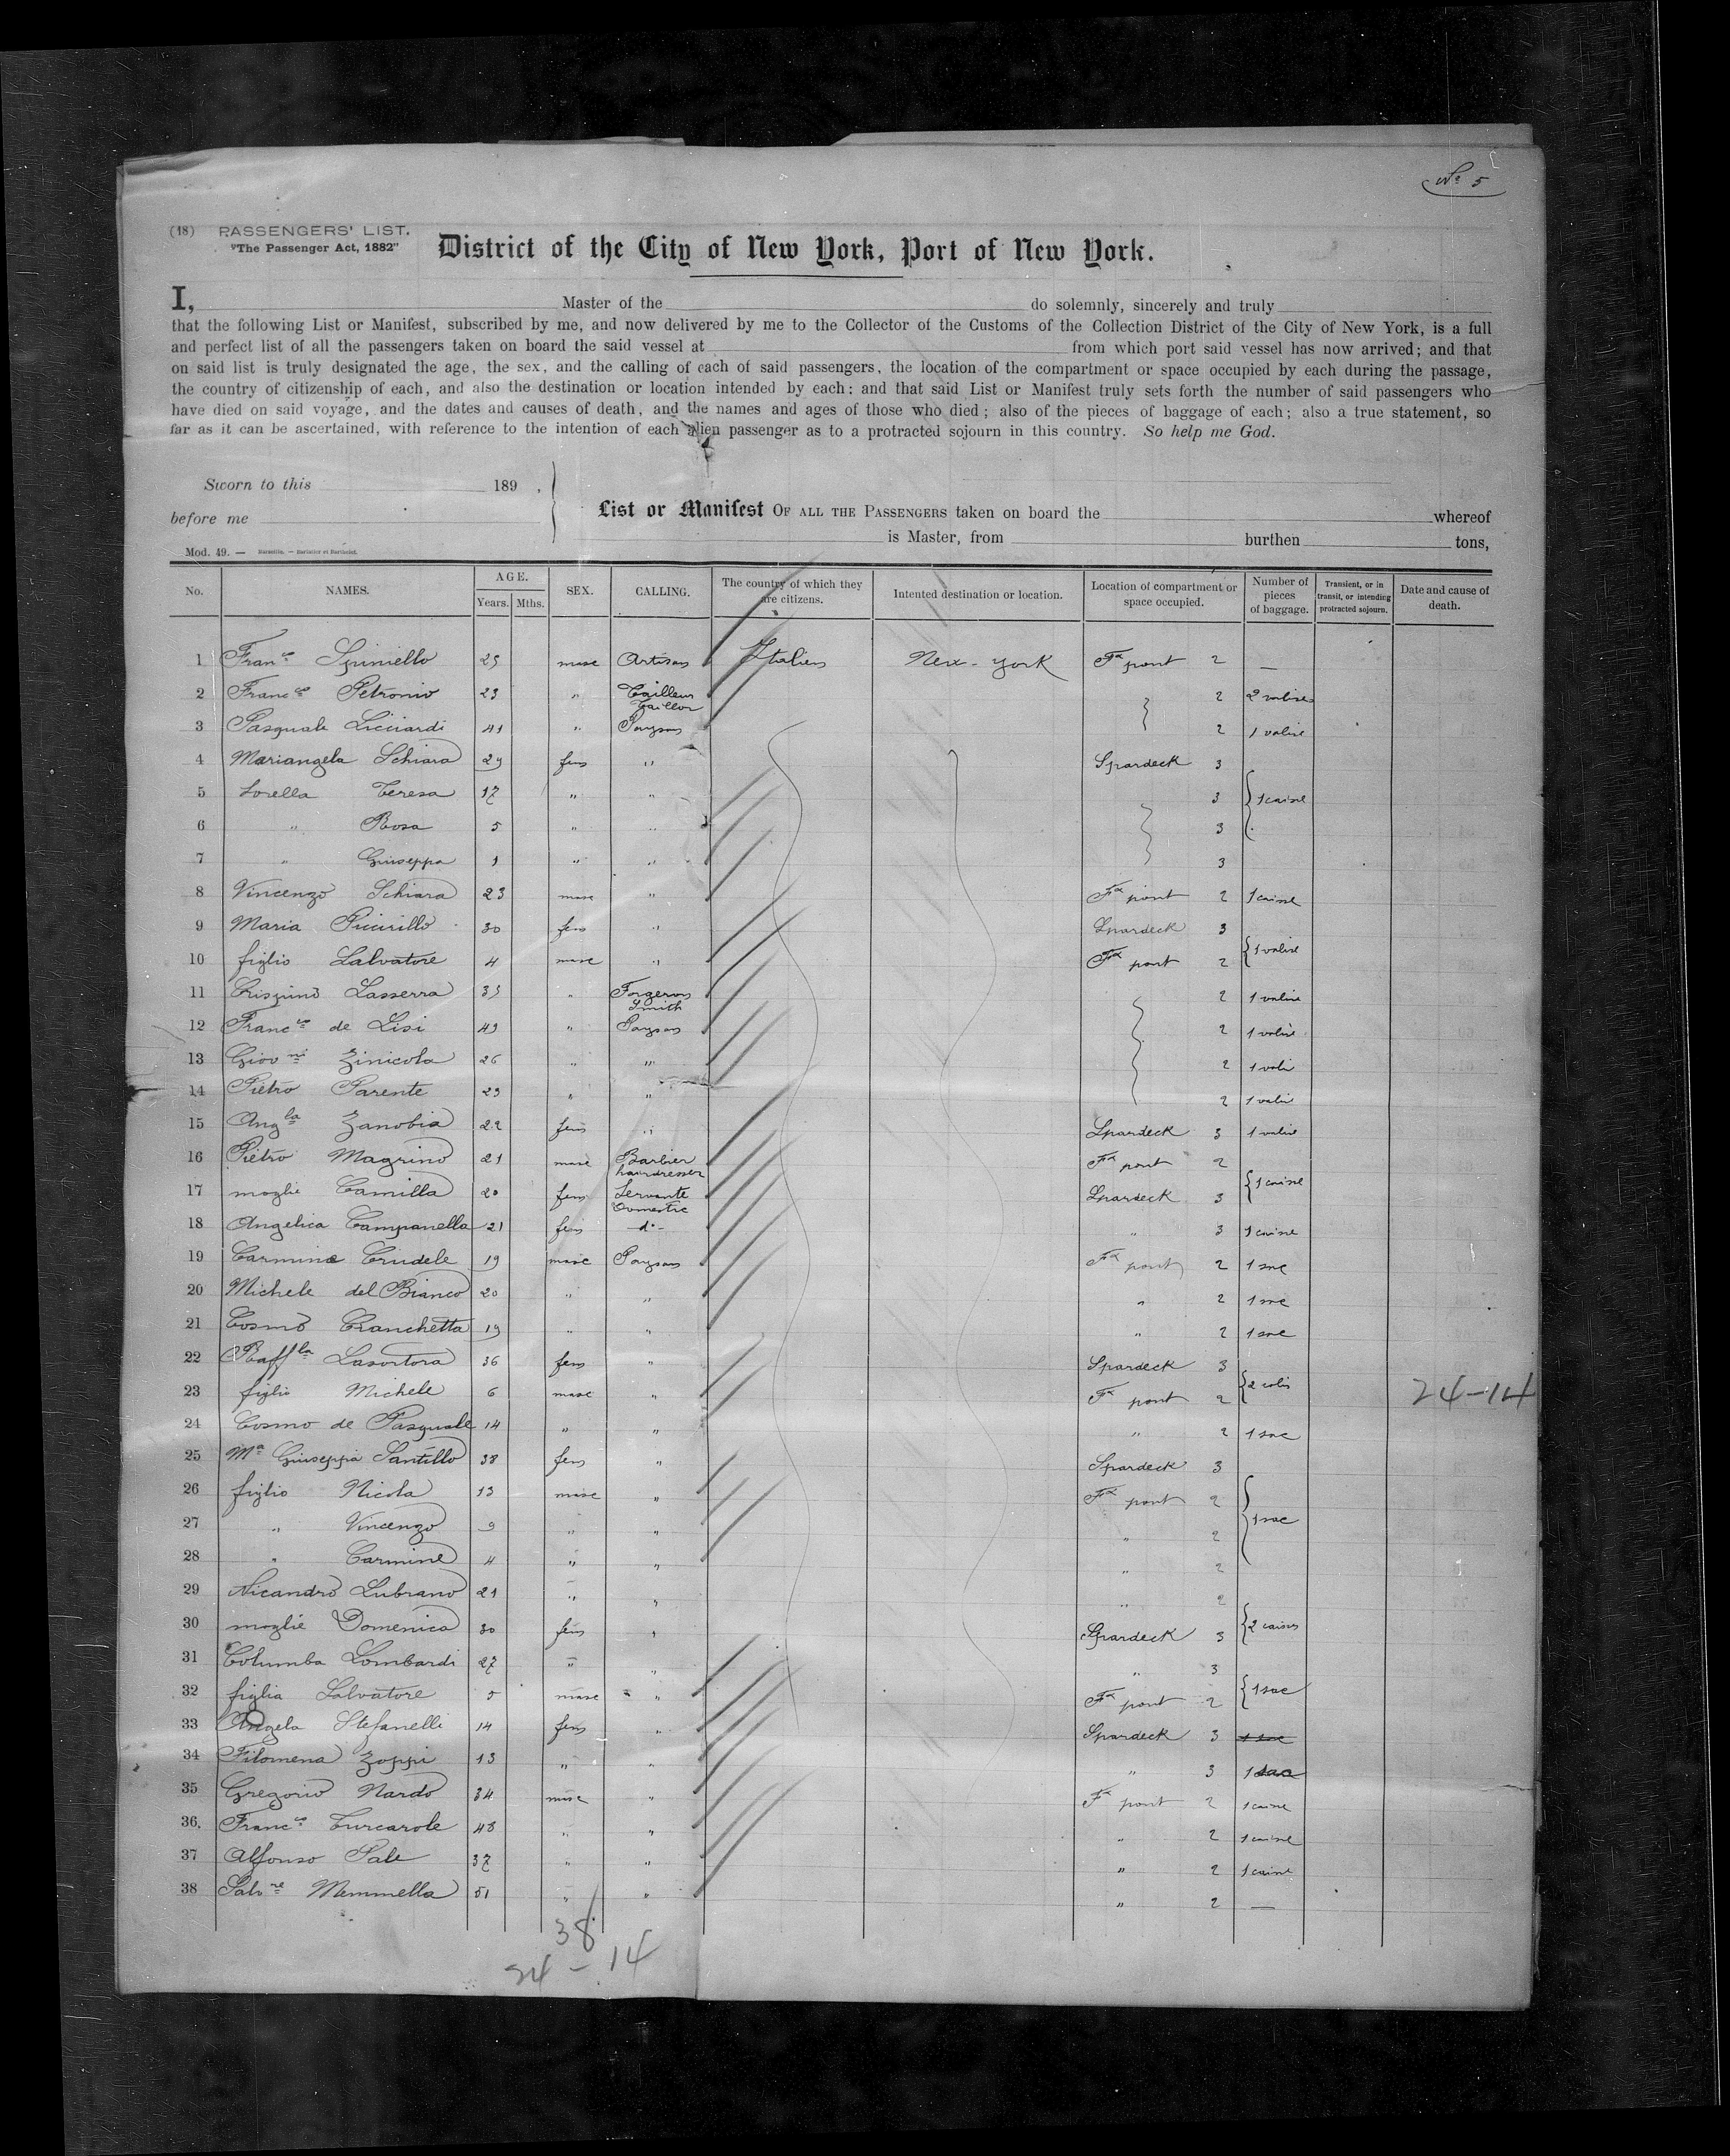 Nº 5
(18) PASSENGERS' LIST.
"The Passenger Act, 1882"
District of the City of New York, Port of New York.
I, Master of the do solemnly, sincerely and truly
that the following List or Manifest, subscribed by me, and now delivered by me to the Collector of the Customs of the Collection District of the City of New York, is a full
and perfect list of all the passengers taken on board the said vessel at from which port said vessel has now arrived; and that
on said list is truly designated the age, the sex, and the calling of each of said passengers, the location of the compartment or space occupied by each during the passage,
the country of citizenship of each, and also the destination or location intended by each; and that said List or Manifest truly sets forth the number of said passengers who
have died on said voyage, and the dates and causes of death, and the names and ages of those who died; also of the pieces of baggage of each; also a true statement, so
far as it can be ascertained, with reference to the intention of each alien passenger as to a protracted sojourn in this country. So help me God.
Sworn to this 189 ,
before me
List or Manifest OF ALL THE PASSENGERS taken on board the whereof
is Master, from burthen tons,
Mod. 49. — Marseille. — Barlatier et Barthelet.
No. NAMES. AGE. Years. Mths. SEX. CALLING. The country of which they are citizens. Intented destination or location. Location of compartment or space occupied. Number of pieces of baggage. Transient, or in transit, or intending protracted sojourn. Date and cause of death.
1 Franco Spiniello 25 masc Artisan Italien New-york Fx pont 2 —
2 Francco Petronio 23 " Tailleur Taillor 2 2 valises
3 Pasquale Licciardi 41 " Paysan 2 1 valise
4 Mariangela Schiara 29 fem " Spardeck 3
5 Sorella Teresa 17 " " 3 1 caisse
6 " Rosa 5 " " 3
7 " Giuseppa 1 " " 3
8 Vincenzo Schiara 23 masc " Fx pont 2 1 caisse
9 Maria Picirillo 30 fem " Spardeck 3
10 figlio Salvatore 4 masc " Fx pont 2 1 valise
11 Crispino Lasserra 35 " Forgeron Smith 2 1 valise
12 Francco de Lisi 49 " Paysan 2 1 valise
13 Giovni Zinicola 26 " " 2 1 valise
14 Pietro Parente 23 " " 2 1 valise
15 Angla Zanobia 22 fem " Spardeck 3 1 valise
16 Pietro Magrino 21 masc Barbier hairdresser Fx pont 2
17 moglie Camilla 20 fem Servante Domestic Spardeck 3 1 caisse
18 Angelica Campanella 21 fem -do- " 3 1 caisse
19 Carmine Crudele 19 masc Paysan Fx pont 2 1 sac
20 Michele del Bianco 20 " " " 2 1 sac
21 Cosmo Cranchetta 19 " " " 2 1 sac
22 Raffla Lasortora 36 fem " Spardeck 3
23 figlio Michele 6 masc " Fx pont 2 2 colis 24-14
24 Cosmo de Pasquale 14 " " " 2 1 sac
25 Ma Giuseppa Santillo 38 fem " Spardeck 3
26 figlio Nicola 13 masc " Fx pont 2
27 " Vincenzo 9 " " " 2 1 sac
28 " Carmine 4 " " " 2
29 Nicandro Lubrano 21 " " " 2
30 moglie Domenica 30 fem " Spardeck 3 2 caisses
31 Columba Lombardi 27 " " " 3
32 figlia Salvatore 5 masc " Fx pont 2 1 sac
33 Angela Stefanelli 14 fem " Spardeck 3 1 sac
34 Filomena Zoppi 13 " " " 3 1 sac
35 Gregorio Nardo 34 masc " Fx pont 2 1 caisse
36. Francco Turcarole 48 " " " 2 1 caisse
37 Alfonso Pale 37 " " " 2 1 caisse
38 Salvre Memmella 51 " " " 2 —
38
24-14